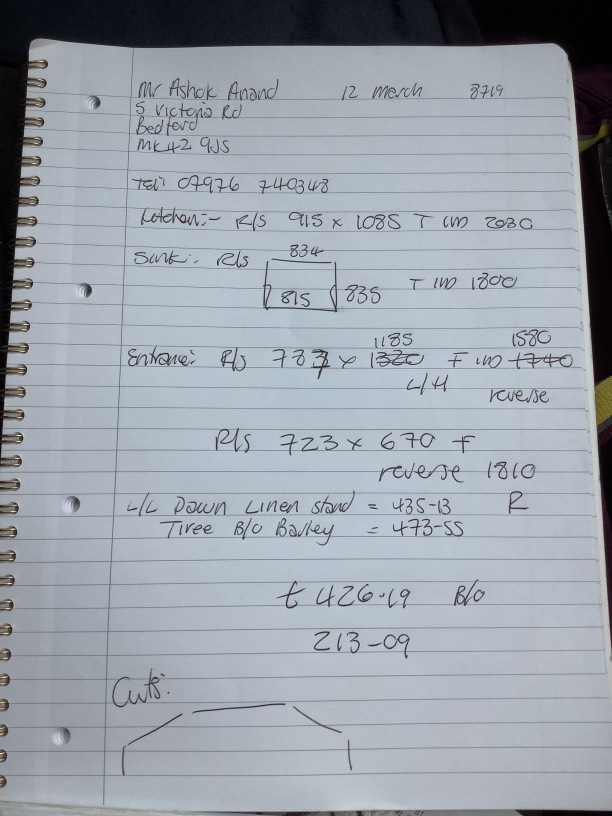 Mr Ashok Anand 12 March 8719
5 Victoria Rd
Bedford
MK42 9JS
Tel: 07976 740348
Kitchen:- R/S 915 x 1085 T IW 2030
834
Sink:- R/S
815 835 T IW 1800
1185 1580
Entrance: R/S 737 x 1320 F IW 1740
L/H reverse
R/S 723 x 670 F
reverse 1810
L/L Down Linen stand = 435-13 R
Tiree B/O Barley = 473-55
£ 426.19 B/O
213-09
Cuts: